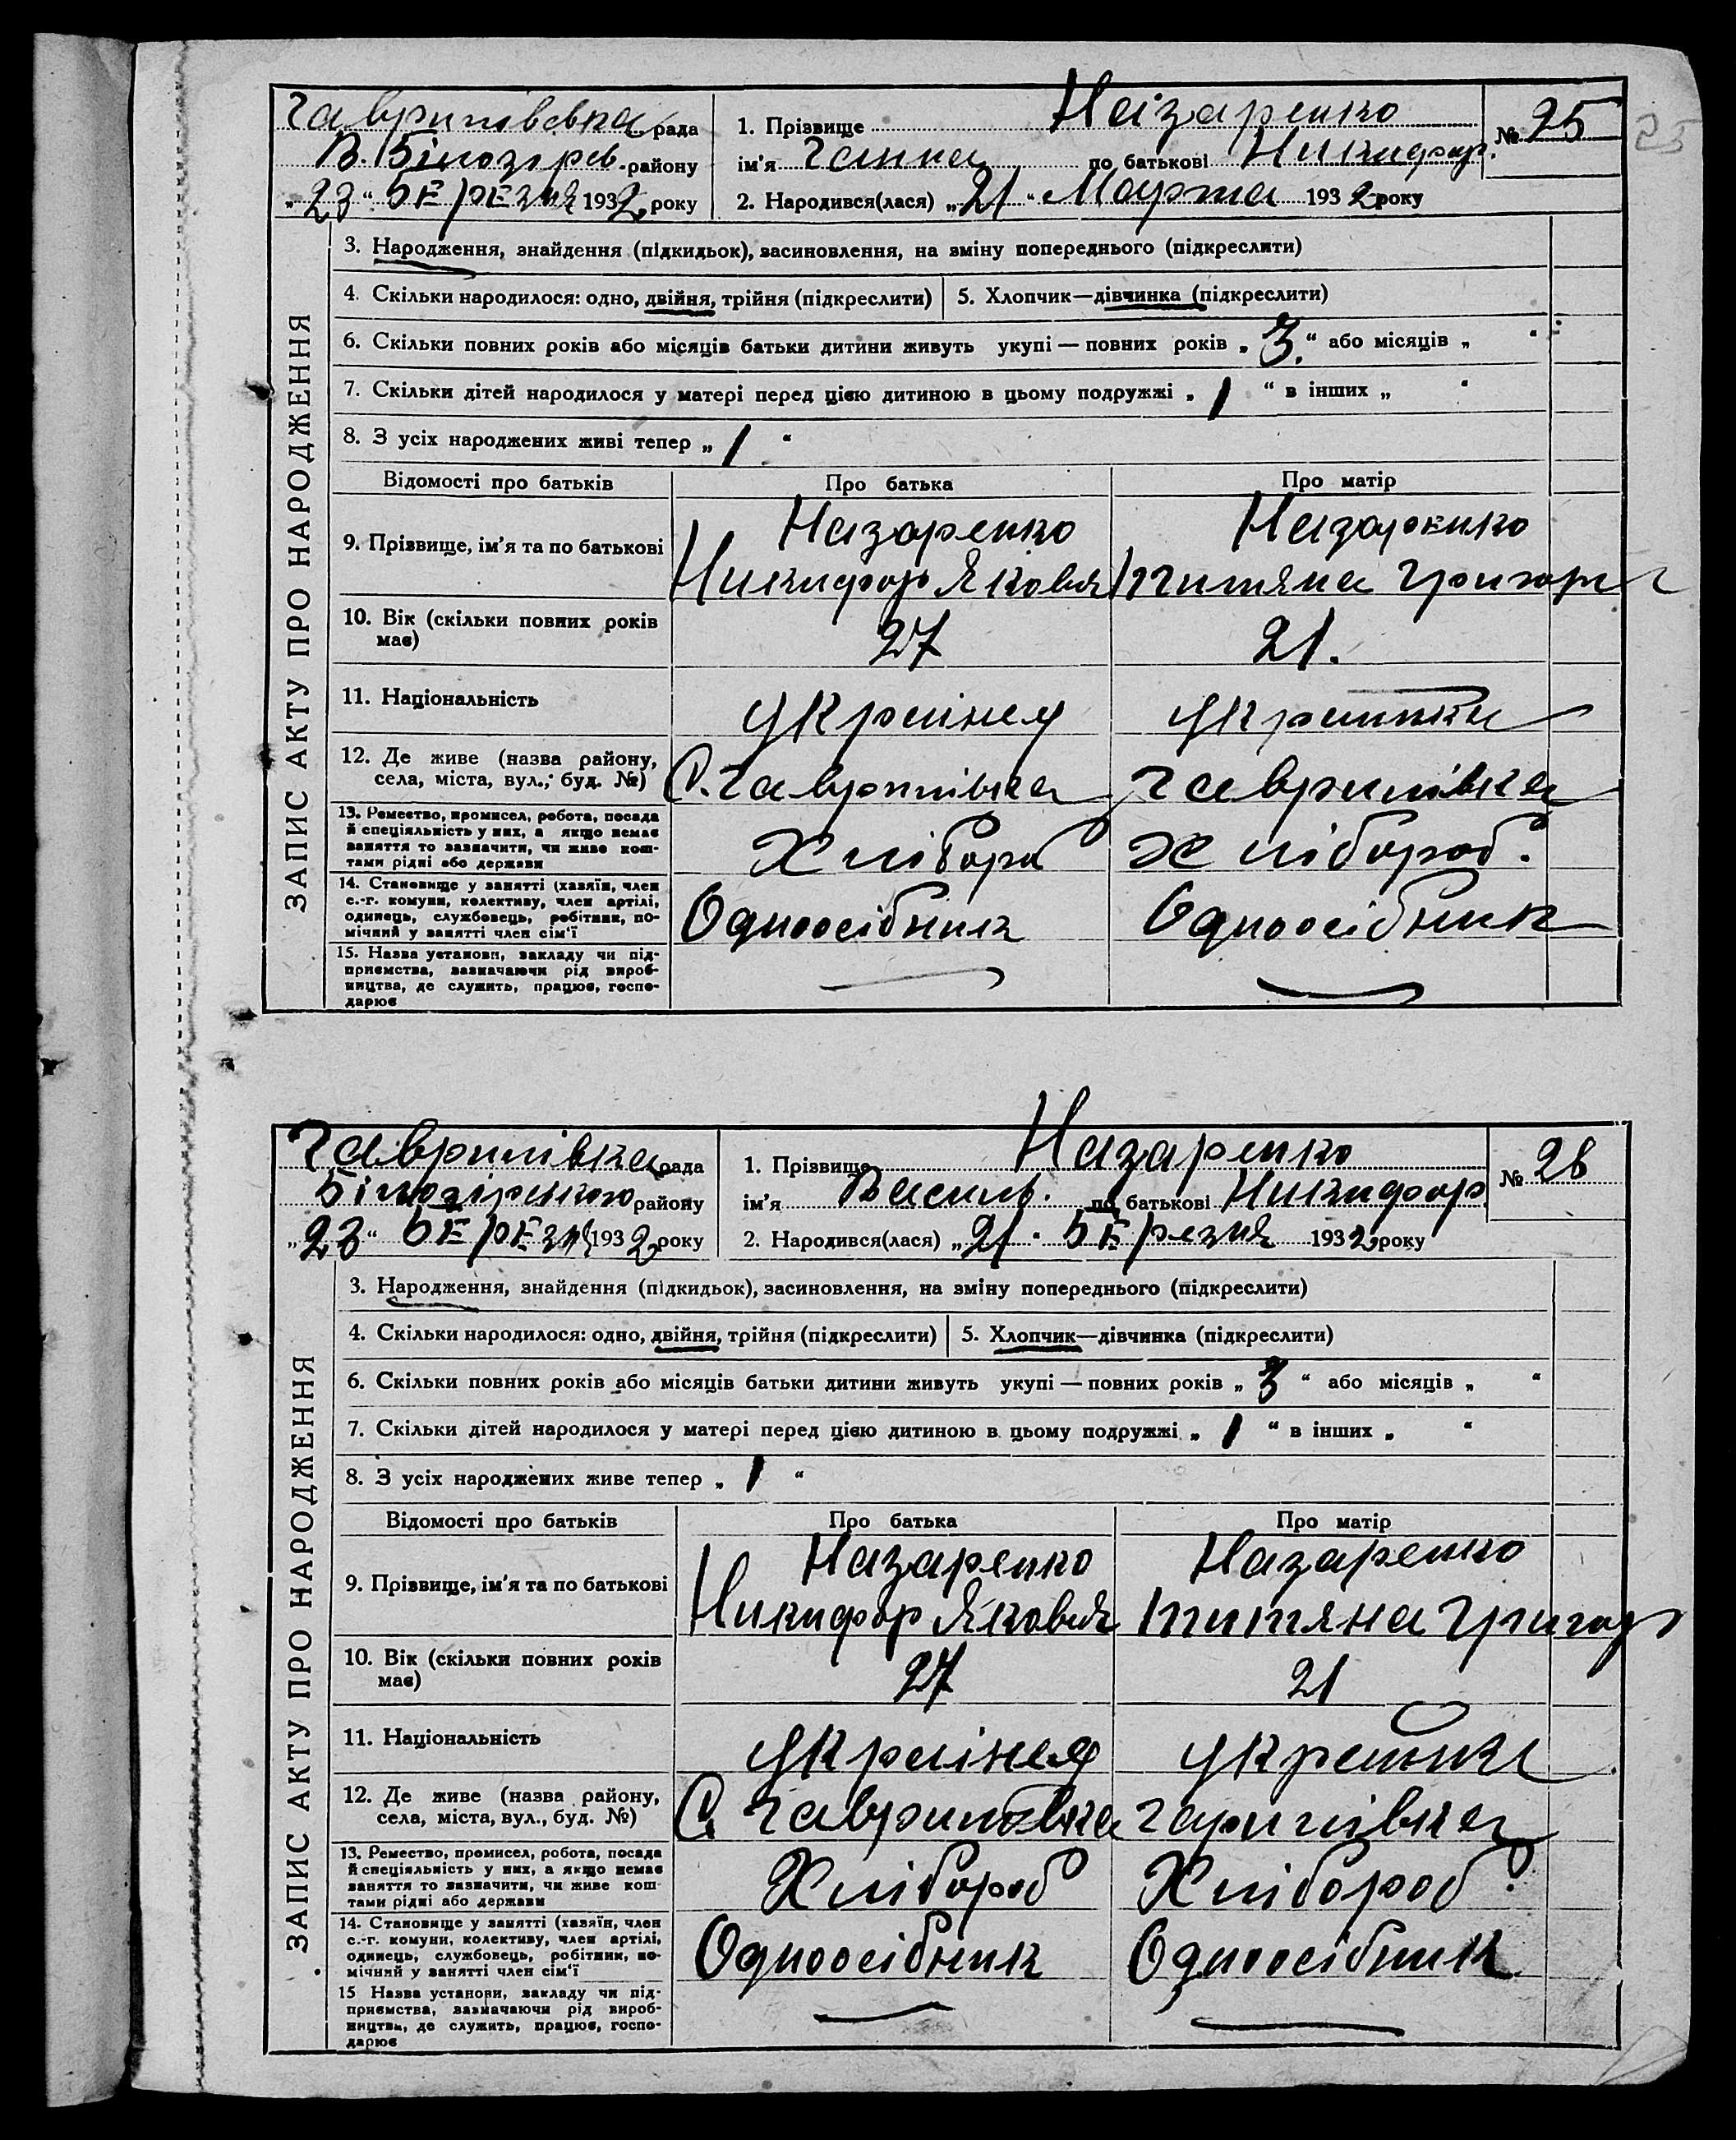 Гаврилівська рада
В. Білозірсь. району
„23“ березня 1932 року
1. Прізвище Назаренко
ім'я Ганна по батькові Никифор.
2. Народився(лася) „21“ Марта 1932 року
№ 25
25
ЗАПИС АКТУ ПРО НАРОДЖЕННЯ
3. Народження, знайдення (підкидьок), засиновлення, на зміну попереднього (підкреслити)
4. Скільки народилося: одно, двійня, трійня (підкреслити) 5. Хлопчик—дівчинка (підкреслити)
6. Скільки повних років або місяців батьки дитини живуть укупі — повних років „3.“ або місяців „ “
7. Скільки дітей народилося у матері перед цією дитиною в цьому подружжі „1“ в інших „ “
8. З усіх народжених живі тепер „1“
Відомості про батьків Про батька Про матір
9. Прізвище, ім'я та по батькові
Назаренко Назаренко
Никифор Яковл Титяна Григор
10. Вік (скільки повних років має) 27 21.
11. Національність українец украинка
12. Де живе (назва району, села, міста, вул., буд. №) С. Гаврилівка Гаврилівка
13. Ремество, промисел, робота, посада
й спеціяльність у них, а якщо немає
заняття то зазначити, чи живе кош-
тами рідні або держави
Хлібороб Хлібороб.
14. Становище у занятті (хазяїн, член
с.-г. комуни, колективу, член артілі,
одинець, службовець, робітник, по-
мічний у занятті член сім'ї
Одноосібник Одноосібник
15. Назва установи, закладу чи під-
приємства, зазначаючи рід вироб-
ництва, де служить, працює, госпо-
дарює
Гаврилівка рада
Білозірського району
„23“ березня 1932 року
1. Прізвище Назаренко
ім'я Василь. по батькові Никифор
2. Народився(лася) „21“ березня 1932 року
№ 26
ЗАПИС АКТУ ПРО НАРОДЖЕННЯ
3. Народження, знайдення (підкидьок), засиновлення, на зміну попереднього (підкреслити)
4. Скільки народилося: одно, двійня, трійня (підкреслити) 5. Хлопчик—дівчинка (підкреслити)
6. Скільки повних років або місяців батьки дитини живуть укупі — повних років „3“ або місяців „ “
7. Скільки дітей народилося у матері перед цією дитиною в цьому подружжі „1“ в інших „ “
8. З усіх народжених живе тепер „1“
Відомості про батьків Про батька Про матір
9. Прізвище, ім'я та по батькові
Назаренко Назаренко
Никифор Яковл Титяна Григор
10. Вік (скільки повних років має) 27 21
11. Національність українец украинка
12. Де живе (назва району, села, міста, вул., буд. №) С. Гаврилівка Гарилівка
13. Ремество, промисел, робота, посада
й спеціяльність у них, а якщо немає
заняття то визначити, чи живе кош-
тами рідні або держави
Хлібороб Хлібороб
14. Становище у занятті (хазяїн, член
с.-г. комуни, колективу, член артілі,
одинець, службовець, робітник, по-
мічний у занятті член сім'ї
Одноосібник Одноосібник
15 Назва установи, закладу чи під-
приємства, зазначаючи рід вироб-
ництва, де служить, працює, госпо-
дарює